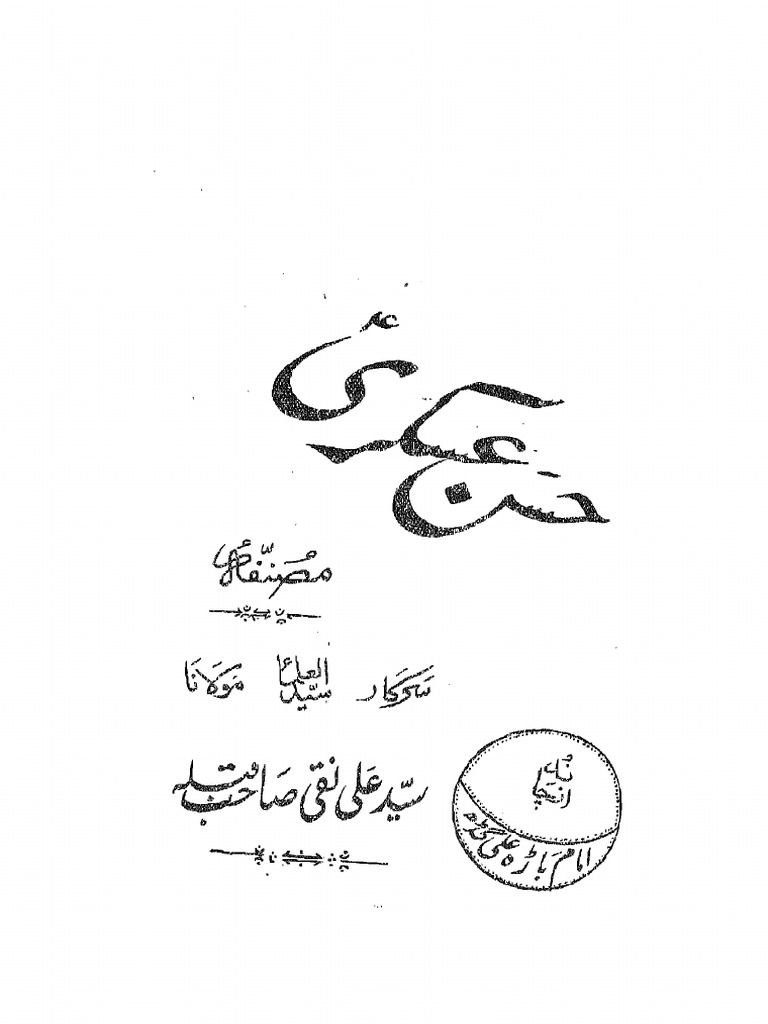 حسن عسکریؑ
مصنفہ
سرکار سید العلماء مولانا
سید علی نقی صاحب قبلہ
امام باڑہ علی